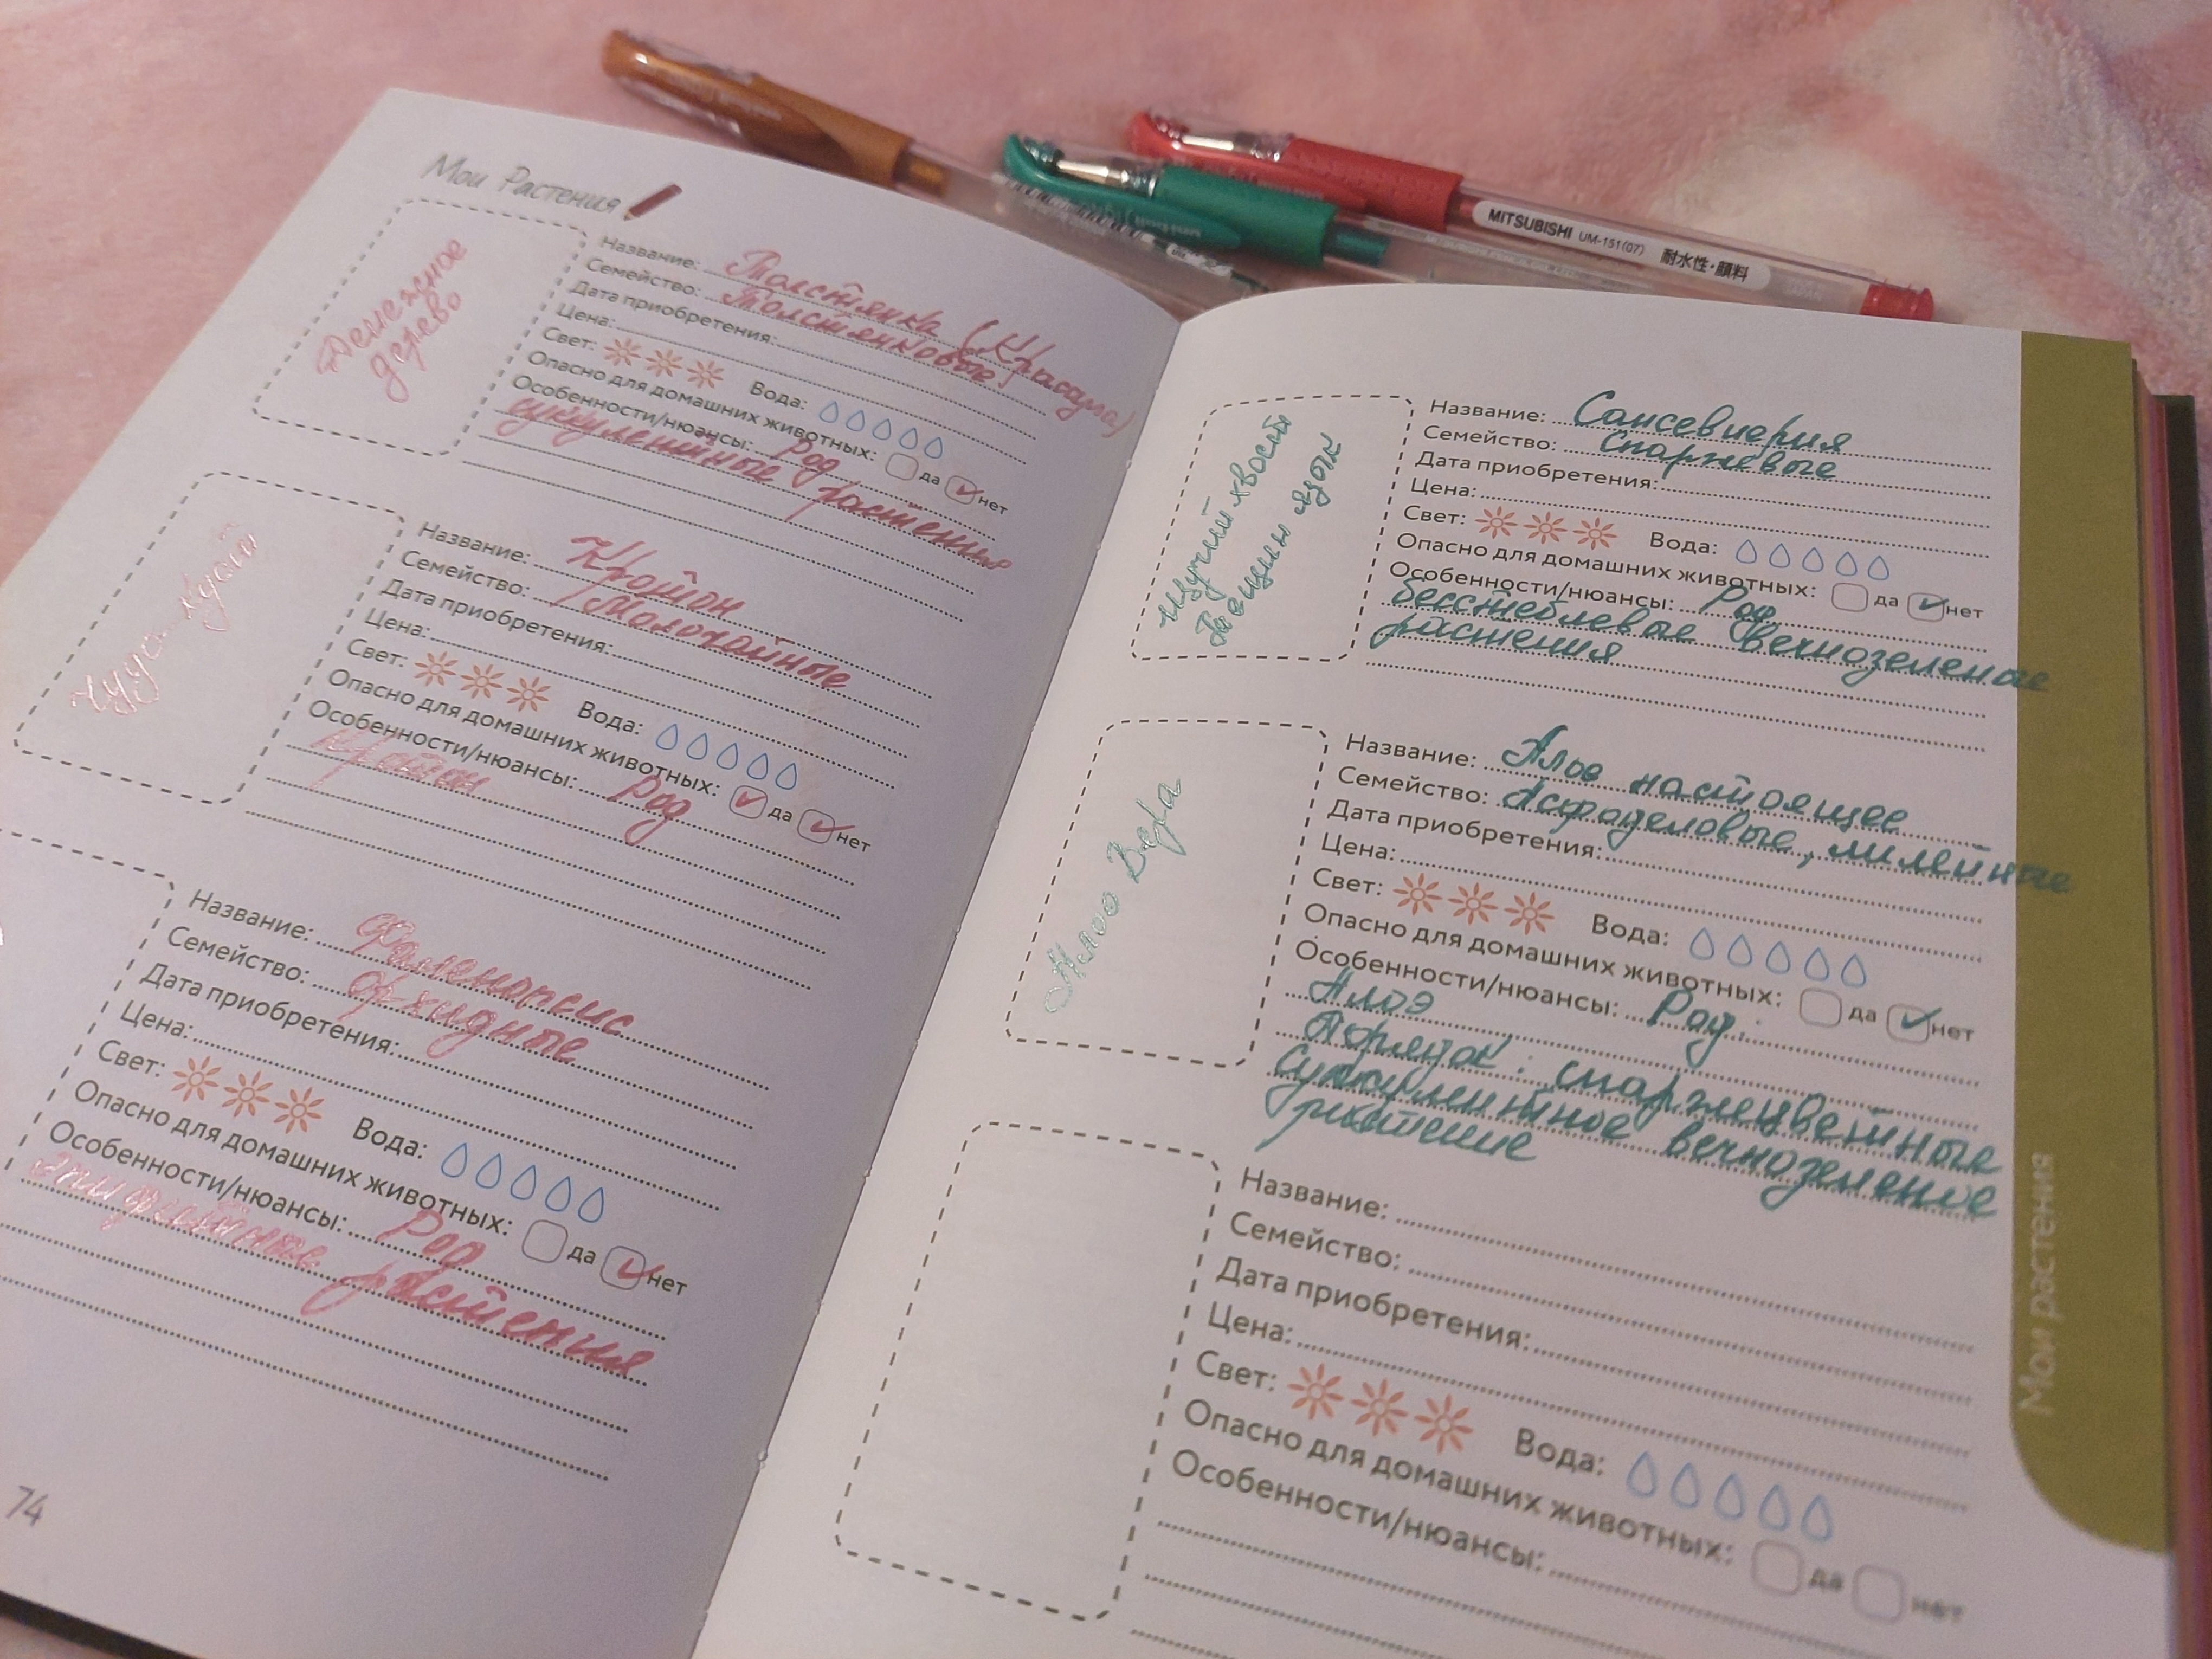 Мои Растения
Денежное
дерево
Название: Толстянка (Крассула)
Семейство: Толстянковые
Дата приобретения:
Цена:
Свет: Вода:
Опасно для домашних животных: да нет
Особенности/нюансы: Род
суккулентные растения
Название: Кротон
Семейство: Молочайные
Дата приобретения:
Цена:
Свет: Вода:
Опасно для домашних животных: да нет
Особенности/нюансы: Род
Кротон
Название: Фаленопсис
Семейство: Орхидные
Дата приобретения:
Цена:
Свет: Вода:
Опасно для домашних животных: да нет
Особенности/нюансы: Род
эпифитные растения
74
Щучий хвост
Тёщин язык
Название: Сансевиерия
Семейство: Спаржевые
Дата приобретения:
Цена:
Свет: Вода:
Опасно для домашних животных: да нет
Особенности/нюансы: Род
бесстеблевые вечнозеленые
растения
Алоэ Вера
Название: Алое настоящее
Семейство: Асфоделовые, лилейные
Дата приобретения:
Цена:
Свет: Вода:
Опасно для домашних животных: да нет
Особенности/нюансы: Род:
Алоэ
Порядок: спаржецветные
Суккулентное вечнозеленое
растение
Название:
Семейство:
Дата приобретения:
Цена:
Свет: Вода:
Опасно для домашних животных: да нет
Особенности/нюансы:
Мои растения
MITSUBISHI UM-151(07) 耐水性・顔料